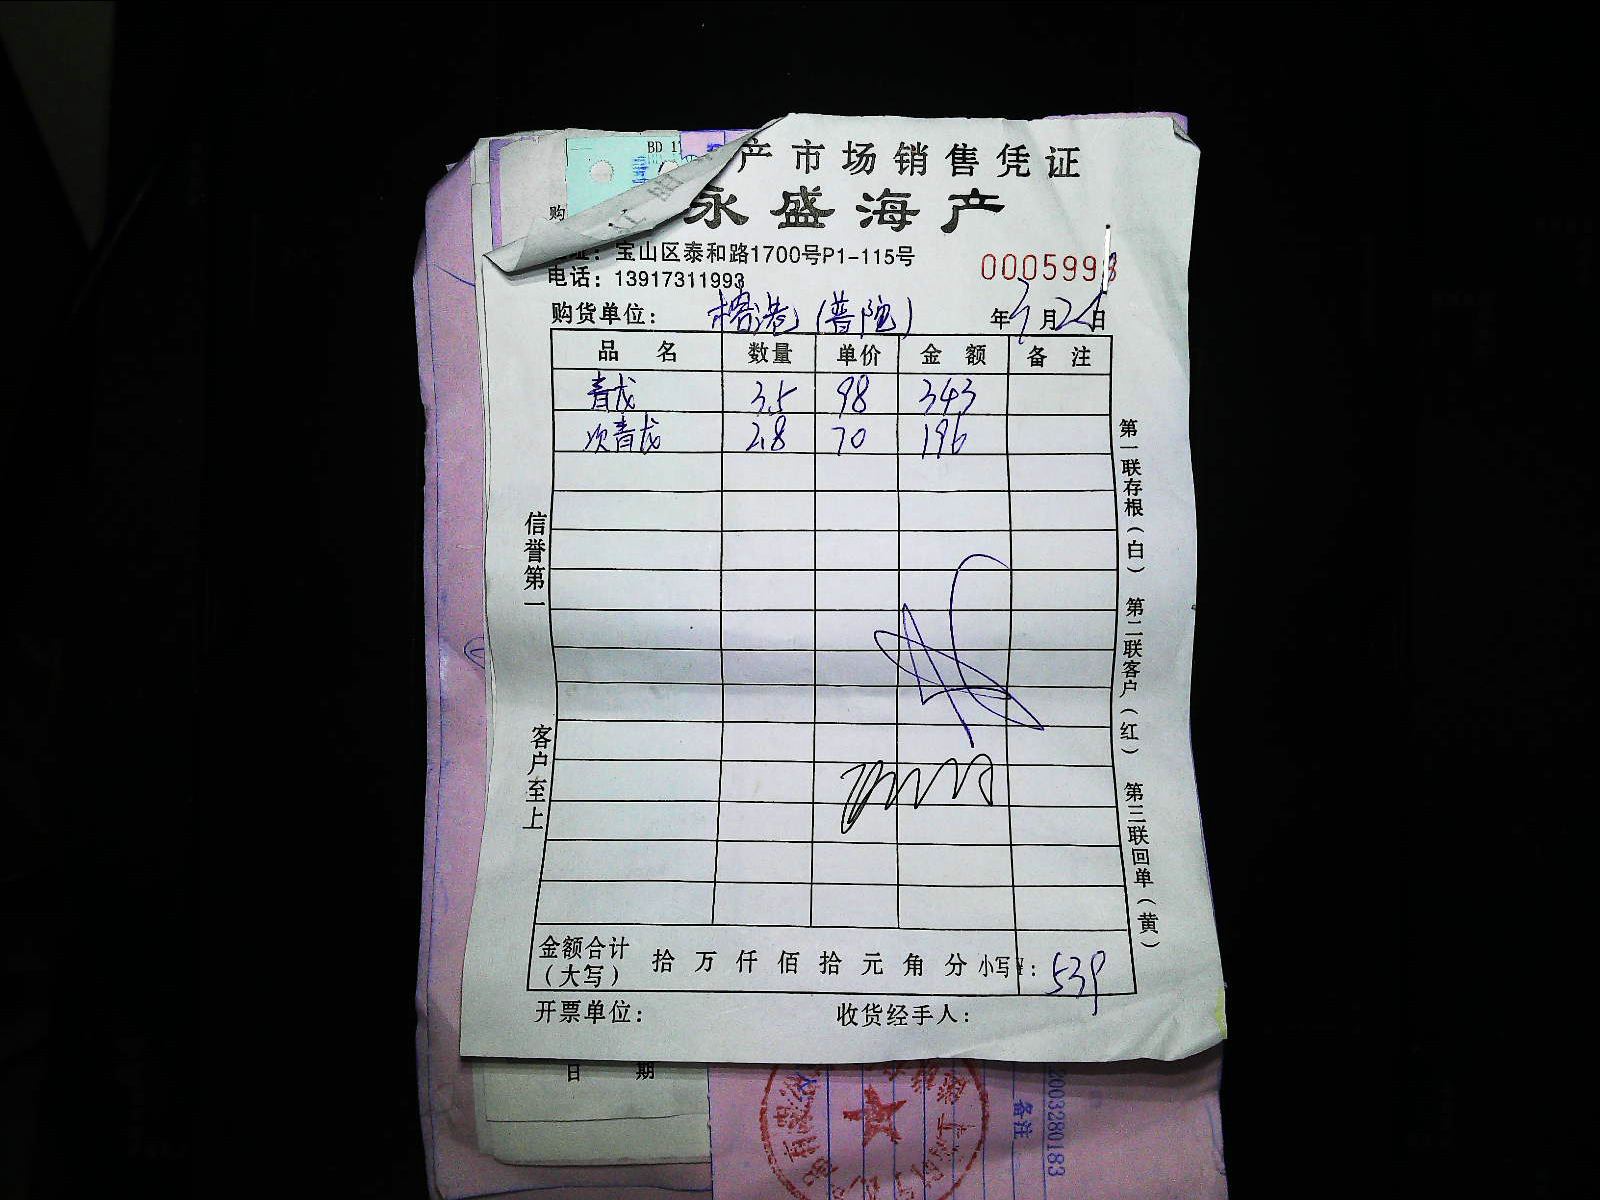 BD 1
产市场销售凭证
购
永盛海产
址：宝山区泰和路1700号P1-115号
电话：13917311993
0005998
购货单位： 榕港（普陀） 年 月 日
品名 数量 单价 金额 备注
青龙 3.5 98 343
次青龙 2.8 70 196
信誉第一
客户至上
第一联存根（白） 第二联客户（红） 第三联回单（黄）
金额合计（大写） 拾 万 仟 佰 拾 元 角 分 小写¥： 539
开票单位： 收货经手人：
日期
备注
2003280183